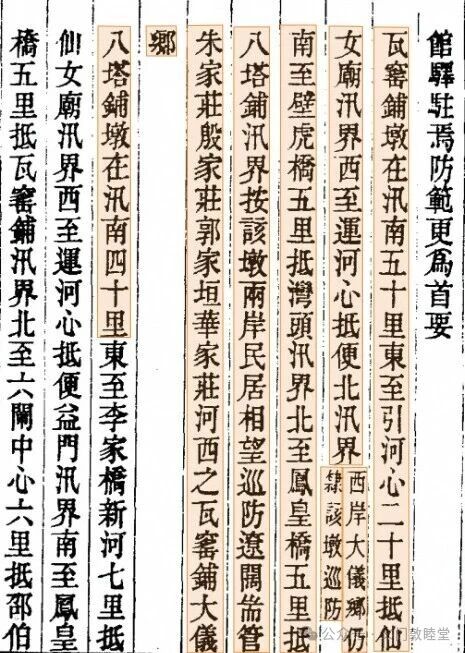 館驛駐焉防範更爲首要
瓦窰鋪墩在汛南五十里東至引河心二十里抵仙
女廟汛界西至運河心抵便北汛界西岸大儀鄉仍
隸該墩巡防
南至壁虎橋五里抵灣頭汛界北至鳳皇橋五里抵
八塔鋪汛界按該墩兩岸民居相望巡防遼闊耑管
朱家莊殷家莊郭家垣華家莊河西之瓦窰鋪大儀
鄉
八塔鋪墩在汛南四十里東至李家橋新河七里抵
仙女廟汛界西至運河心抵便益門汛界南至鳳皇
橋五里抵瓦窰鋪汛界北至六閘中心六里抵邵伯